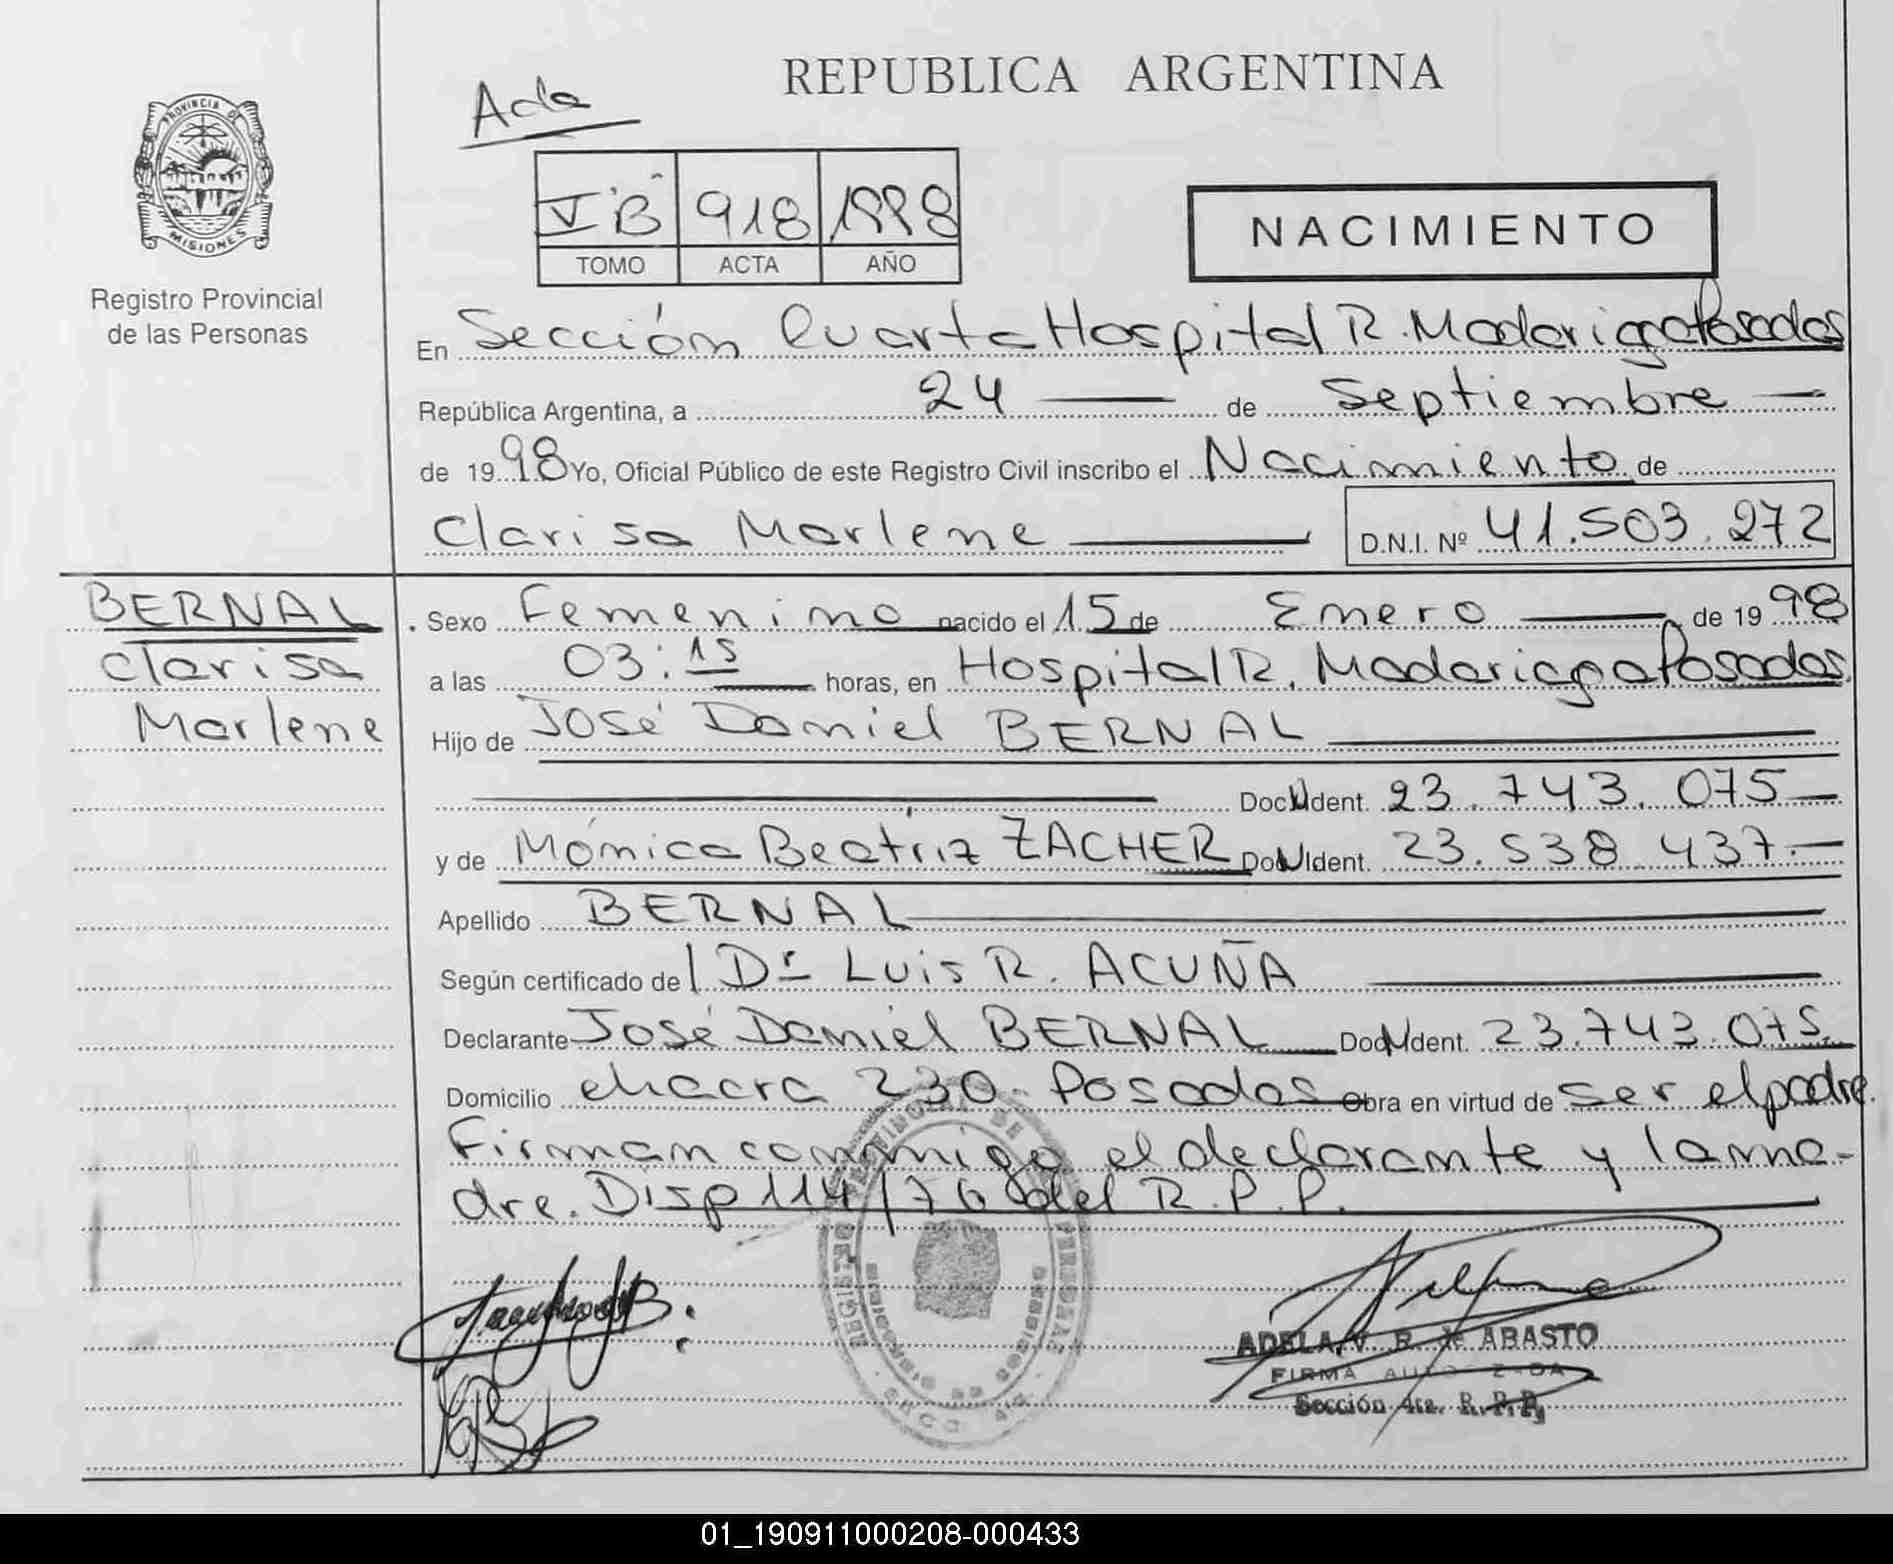 REPUBLICA ARGENTINA
Acta
PROVINCIA DE
MISIONES
V "B" 918 1998
TOMO ACTA AÑO
NACIMIENTO
Registro Provincial
de las Personas
En Sección Cuarta Hospital R. Madariaga Posadas
República Argentina, a 24 de Septiembre
de 1998 Yo, Oficial Público de este Registro Civil inscribo el Nacimiento de
Clarisa Marlene D.N.I. Nº 41.503.272
BERNAL
Clarisa
Marlene
Sexo Femenino nacido el 15 de Enero de 1998
a las 03:15 horas, en Hospital R. Madariaga Posadas.
Hijo de José Daniel BERNAL
Doc. Ident. 23.743.075
y de Mónica Beatriz ZACHER Doc. Ident. 23.538.437.
Apellido BERNAL
Según certificado de Dr Luis R. ACUÑA
Declarante José Daniel BERNAL Doc. Ident. 23.743.075
Domicilio chacra 230 - Posadas Obra en virtud de ser el padre.
Firman conmigo el declarante y la ma-
dre. Disp 114/76 del R.P.P.
ADELA V. R. de ABASTO
FIRMA AUTORIZADA
Sección 4ta. R.P.P.
01_190911000208-000433